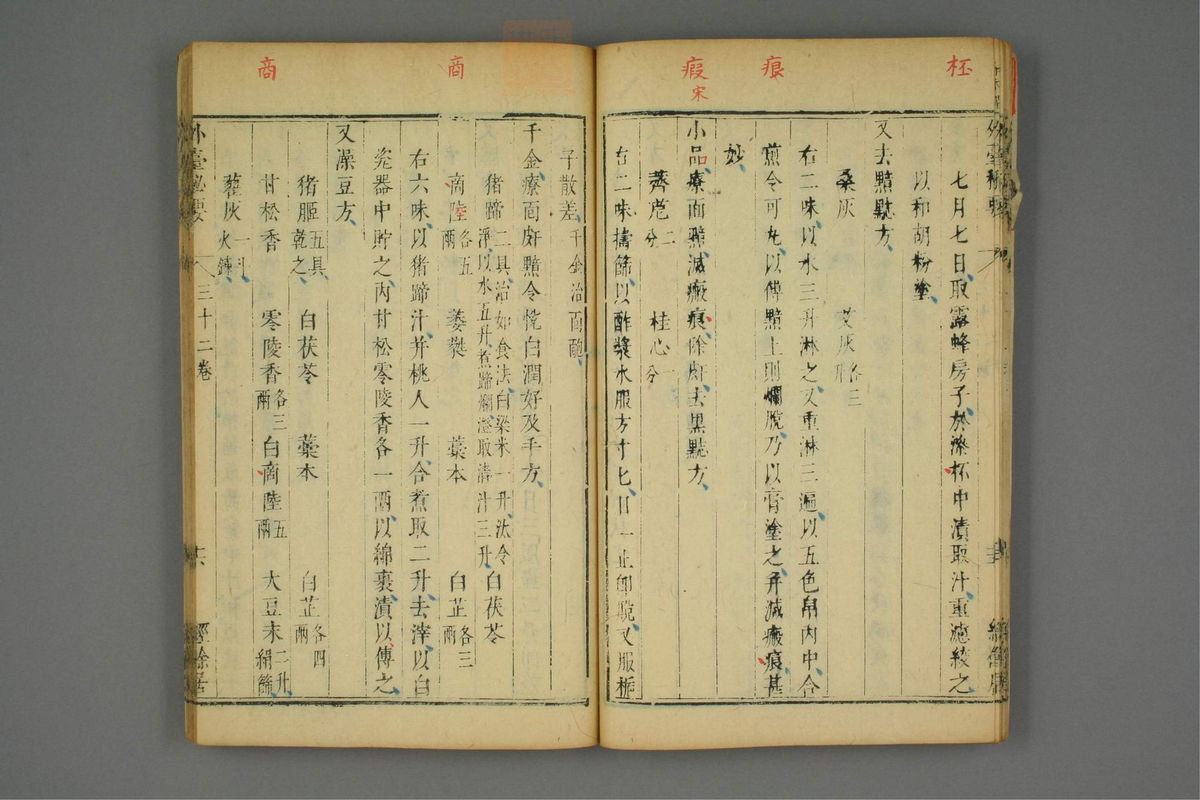 柸
痕
瘕
宋
七月七日取露蜂房子於漆杯中漬取汁重濾綾之
以和胡粉塗
又去黯䵟方
桑灰 艾灰各三升
右二味以水三升淋之又重淋三遍以五色帛內中合
煎令可丸以傅黯上則爛脫乃以膏塗之并減瘢痕甚
妙
小品療面黯減瘢痕除肉去黑䵟方
薺苨二分 桂心一分
右二味擣篩以酢漿水服方寸匕日一止即脫又服梔
商
商
子散差千金治面皰
千金療面皯黯令悅白潤好及手方
猪蹄二具治如食法白粱米一升汰令淨以水五升煮蹄爛澄取清汁三升 白茯苓
商陸各五兩 萎蕤 藁本 白芷各三兩
右六味以猪蹄汁并桃人一升合煮取二升去滓以白
瓷器中貯之內甘松零陵香各一兩以綿裹漬以傅之
又澡豆方
猪胵五具乾之 白茯苓 藁本 白芷各四兩
甘松香 零陵香各三兩 白商陸五兩 大豆末二升絹篩
藜灰一斗火鍊
外臺秘要 三十二卷 六 經餘居